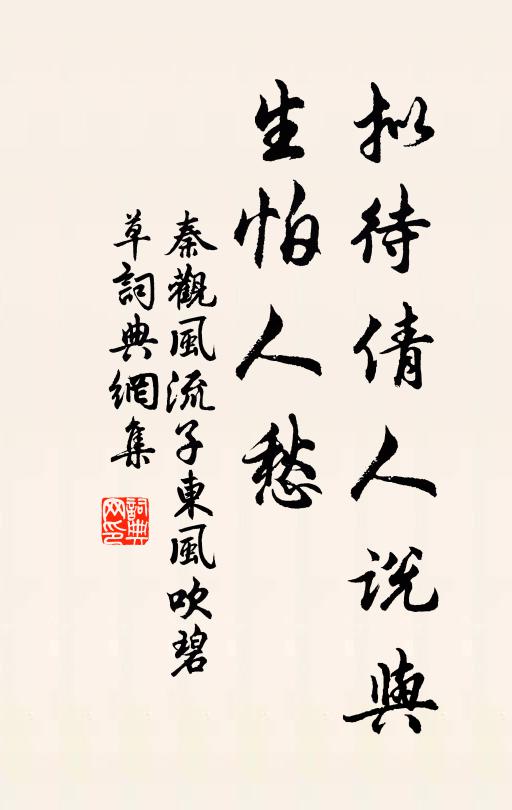 拟待倩人说與
生怕人愁
秦觀風流子東風吹碧
草詞典網集
詞典
网印